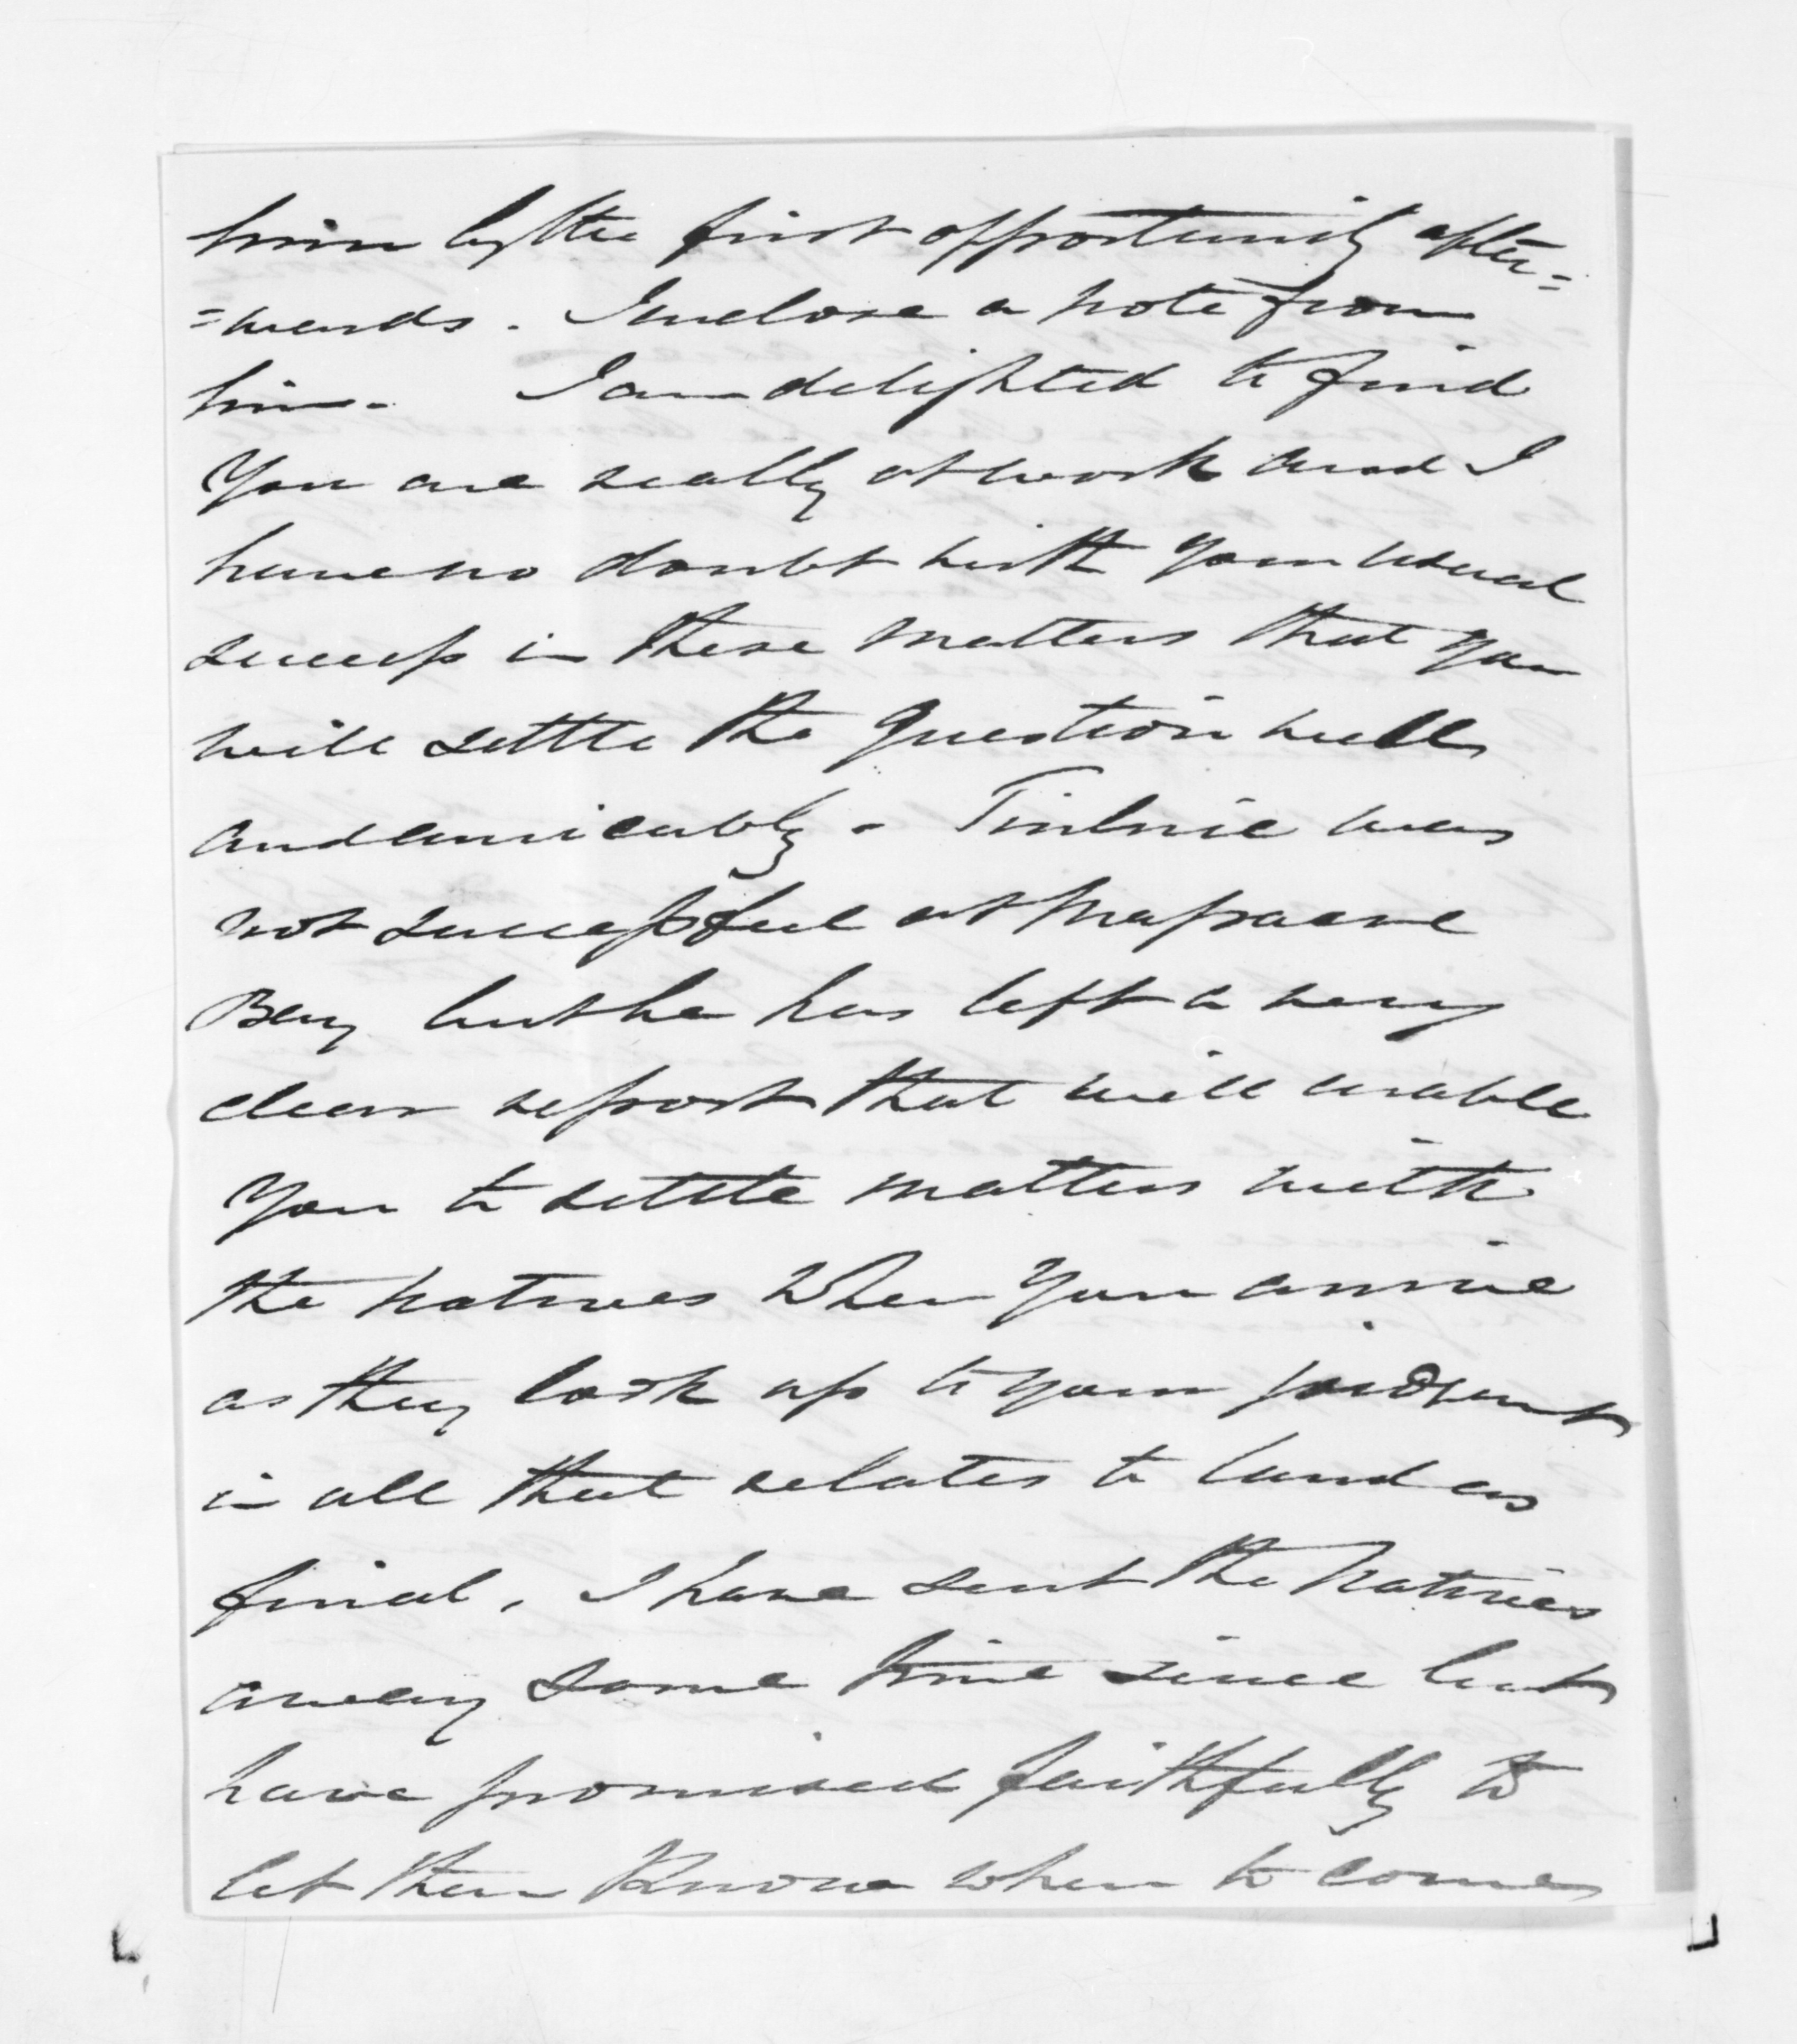 him by the first opportunity after=
=wards. I enclose a note from
him. I am delighted to find
you are really at work and I
have no doubt with your usual
success in these matters that you
will settle the question well
and amicably. Tinline was
not successful at Massacre
Bay but he has left a very
clear report that will enable
you to settle matters with
the natives when you arrive
as they look up to your judgment
in all that relates to land as
final, I have sent the Natives
away some time since but
have promised faithfully to
let them know when to come